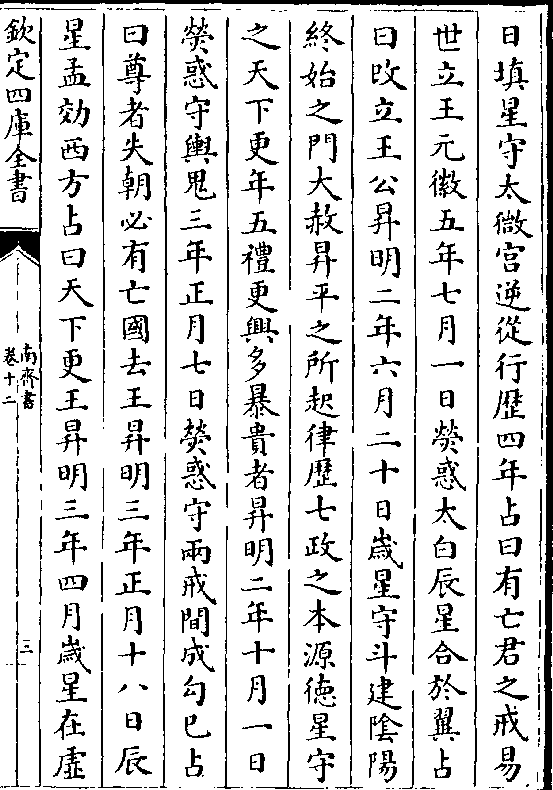 日填星守太微宫逆從行歴四年占曰有亡君之戒易
世立王元徽五年七月一日熒惑太白辰星合於翼占
曰改立王公昇明二年六月二十日歳星守斗建陰陽
終始之門大赦昇平之所起律歴七政之本源徳星守
之天下更年五禮更興多暴貴者昇明二年十月一日
熒惑守輿鬼三年正月七日熒惑守兩戒間成勾巳占
曰尊者失朝必有亡國去王昇明三年正月十八日辰
星孟効西方占曰天下更王昇明三年四月歳星在虚
欽定四庫全書
南齊書
卷十二
三